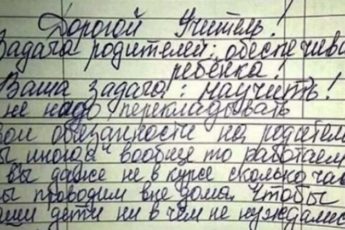 Дорогой Учитель!
Задача родителей: обеспечива
ребёнка!
Ваша задача: научить!
не надо перекладывать
вои обязанности на родителе
ы иногда вообще то работаем
вы даже не в курсе сколько ча
ы проводим вне дома чтобы
аши дети ни в чем не нуждались